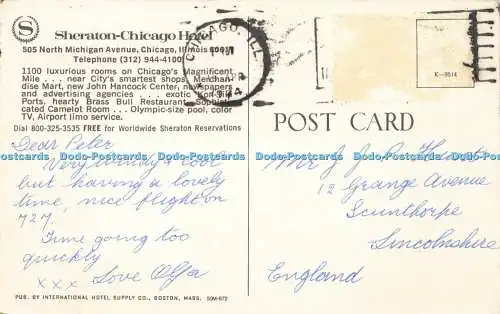 S
Sheraton-Chicago Hotel
505 North Michigan Avenue, Chicago, Illinois 60611
Telephone (312) 944-4100
1100 luxurious rooms on Chicago's Magnificent
Mile . . . near City's smartest shops, Merchan-
dise Mart, new John Hancock Center, newspapers
and advertising agencies . . . exotic Kon-Tiki
Ports, hearty Brass Bull Restaurant, Sophisti-
cated Camelot Room . . . Olympic-size pool, color
TV, Airport limo service.
Dial 800-325-3535 FREE for Worldwide Sheraton Reservations
CHICAGO, ILL
PM
K-3014
POST CARD
Dear Peter
Very windy & cool
but having a lovely
time, nice flight on
727.
Time going too
quickly
x x x Love Olga
Mr J
12 Grange Avenue
Scunthorpe
Lincolnshire
England
Postcards www.Postcards www.Postcards www.Postcards www.Postcards
PUB. BY INTERNATIONAL HOTEL SUPPLY CO., BOSTON, MASS. 50M-672